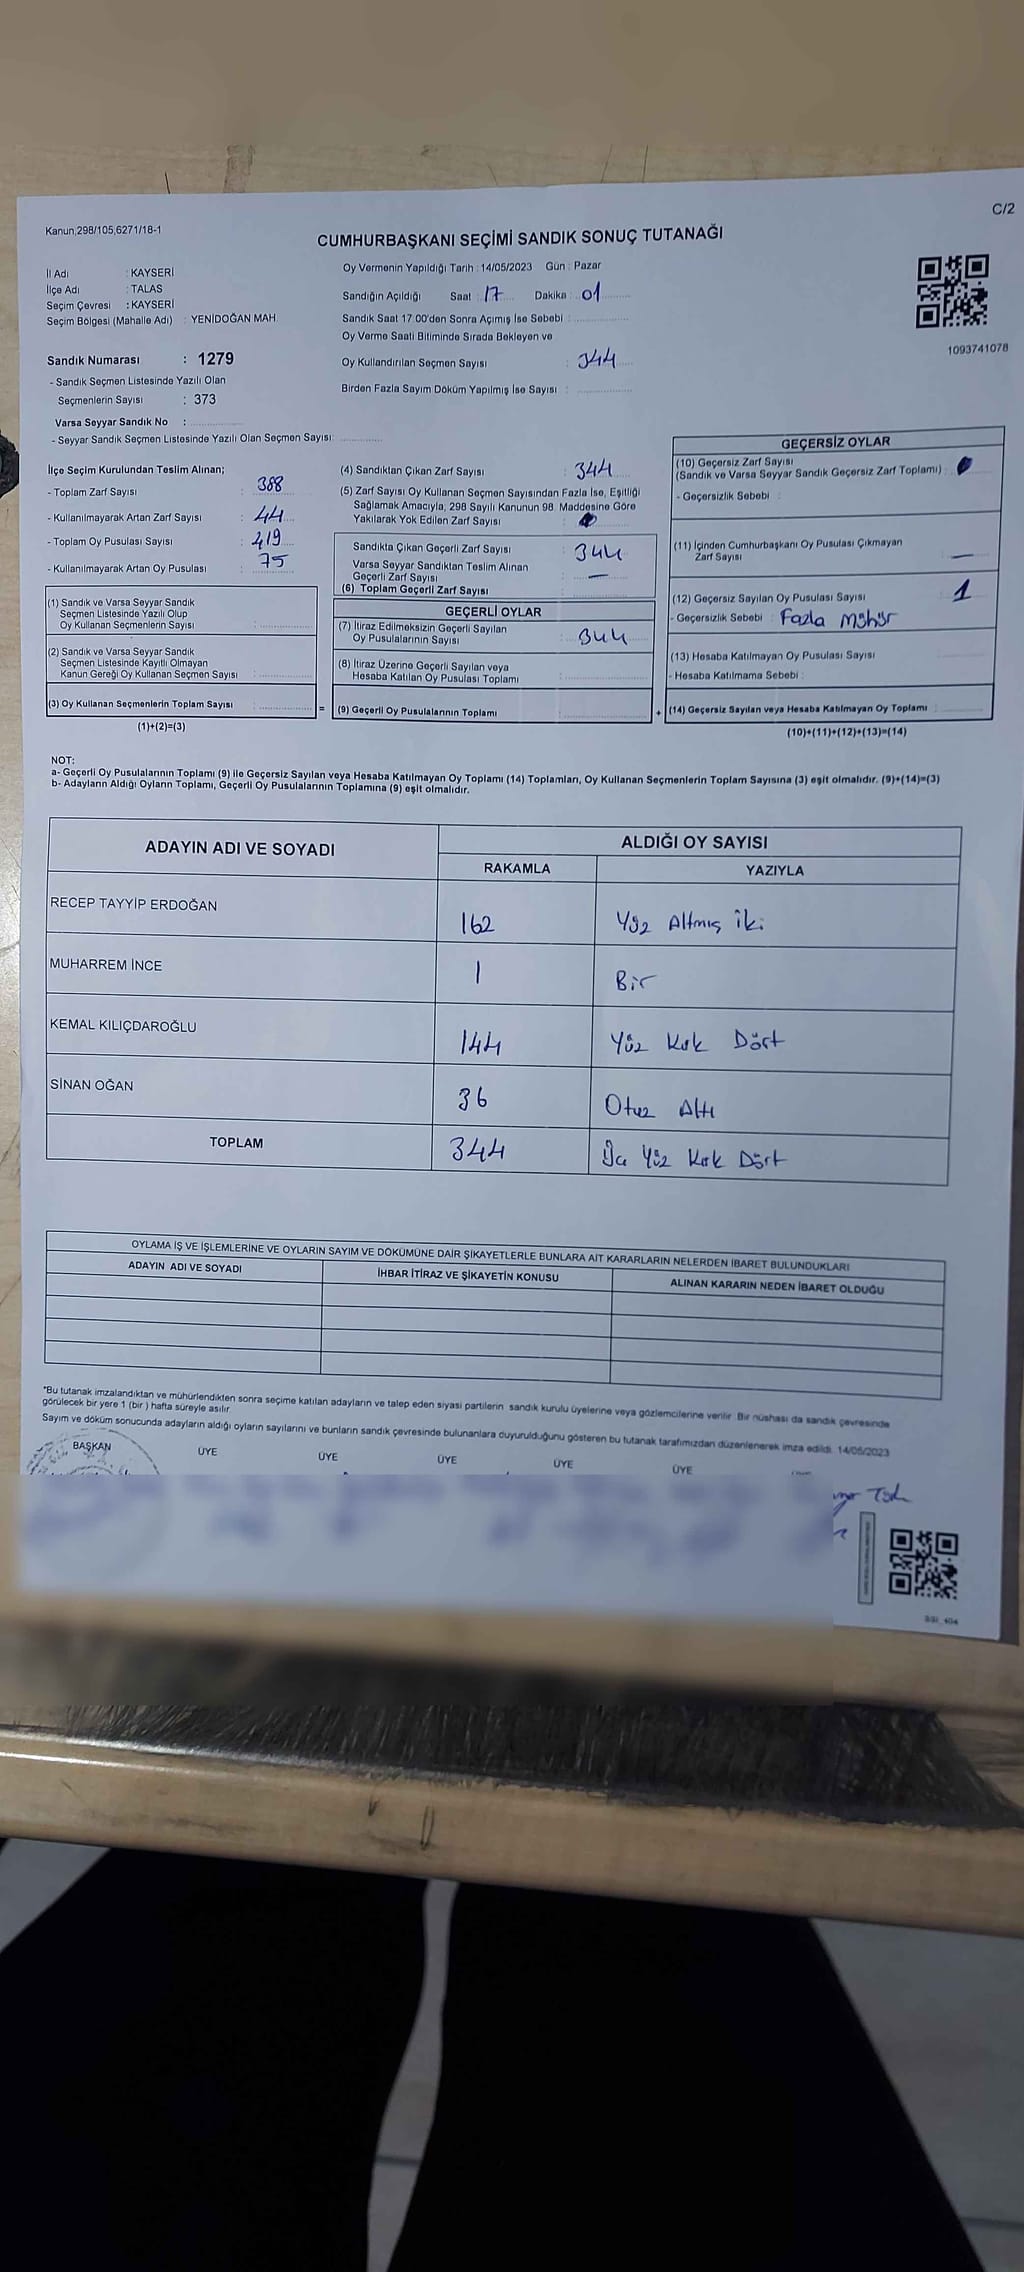 C/2
Kanun,298/105,6271/18-1
CUMHURBAŞKANI SEÇİMİ SANDIK SONUÇ TUTANAĞI
İl Adı : KAYSERİ
İlçe Adı : TALAS
Seçim Çevresi : KAYSERİ
Seçim Bölgesi (Mahalle Adı) : YENİDOĞAN MAH.
Oy Vermenin Yapıldığı Tarih : 14/05/2023 Gün : Pazar
Sandığın Açıldığı Saat : 17 Dakika : 01
Sandık Saat 17:00'den Sonra Açımış İse Sebebi :
Oy Verme Saati Bitiminde Sırada Bekleyen ve
Oy Kullandırılan Seçmen Sayısı : 344
Birden Fazla Sayım Döküm Yapılmış İse Sayısı :
1093741078
Sandık Numarası : 1279
- Sandık Seçmen Listesinde Yazılı Olan
Seçmenlerin Sayısı : 373
Varsa Seyyar Sandık No :
- Seyyar Sandık Seçmen Listesinde Yazılı Olan Seçmen Sayısı:
İlçe Seçim Kurulundan Teslim Alınan;
- Toplam Zarf Sayısı : 388
- Kullanılmayarak Artan Zarf Sayısı : 44
- Toplam Oy Pusulası Sayısı : 419
- Kullanılmayarak Artan Oy Pusulası : 75
(1) Sandık ve Varsa Seyyar Sandık
Seçmen Listesinde Yazılı Olup
Oy Kullanan Seçmenlerin Sayısı :
(2) Sandık ve Varsa Seyyar Sandık
Seçmen Listesinde Kayıtlı Olmayan
Kanun Gereği Oy Kullanan Seçmen Sayısı :
(3) Oy Kullanan Seçmenlerin Toplam Sayısı : =
(1)+(2)=(3)
(4) Sandıktan Çıkan Zarf Sayısı : 344
(5) Zarf Sayısı Oy Kullanan Seçmen Sayısından Fazla İse, Eşitliği
Sağlamak Amacıyla, 298 Sayılı Kanunun 98. Maddesine Göre
Yakılarak Yok Edilen Zarf Sayısı :
Sandıkta Çıkan Geçerli Zarf Sayısı : 344
Varsa Seyyar Sandıktan Teslim Alınan
Geçerli Zarf Sayısı : —
(6) Toplam Geçerli Zarf Sayısı :
GEÇERLİ OYLAR
(7) İtiraz Edilmeksizin Geçerli Sayılan
Oy Pusulalarının Sayısı : 344
(8) İtiraz Üzerine Geçerli Sayılan veya
Hesaba Katılan Oy Pusulası Toplamı :
(9) Geçerli Oy Pusulalarının Toplamı : +
GEÇERSİZ OYLAR
(10) Geçersiz Zarf Sayısı
(Sandık ve Varsa Seyyar Sandık Geçersiz Zarf Toplamı) :
- Geçersizlik Sebebi :
(11) İçinden Cumhurbaşkanı Oy Pusulası Çıkmayan
Zarf Sayısı : —
(12) Geçersiz Sayılan Oy Pusulası Sayısı : 1
- Geçersizlik Sebebi : Fazla Mühür
(13) Hesaba Katılmayan Oy Pusulası Sayısı :
- Hesaba Katılmama Sebebi :
(14) Geçersiz Sayılan veya Hesaba Katılmayan Oy Toplamı :
(10)+(11)+(12)+(13)=(14)
NOT:
a- Geçerli Oy Pusulalarının Toplamı (9) ile Geçersiz Sayılan veya Hesaba Katılmayan Oy Toplamı (14) Toplamları, Oy Kullanan Seçmenlerin Toplam Sayısına (3) eşit olmalıdır. (9)+(14)=(3)
b- Adayların Aldığı Oyların Toplamı, Geçerli Oy Pusulalarının Toplamına (9) eşit olmalıdır.
ADAYIN ADI VE SOYADI
ALDIĞI OY SAYISI
RAKAMLA YAZIYLA
RECEP TAYYİP ERDOĞAN 162 Yüz Altmış iki
MUHARREM İNCE 1 Bir
KEMAL KILIÇDAROĞLU 144 Yüz Kırk Dört
SİNAN OĞAN 36 Otuz Altı
TOPLAM 344 Üç Yüz Kırk Dört
OYLAMA İŞ VE İŞLEMLERİNE VE OYLARIN SAYIM VE DÖKÜMÜNE DAİR ŞİKAYETLERLE BUNLARA AİT KARARLARIN NELERDEN İBARET BULUNDUKLARI
ADAYIN ADI VE SOYADI İHBAR İTİRAZ VE ŞİKAYETİN KONUSU ALINAN KARARIN NEDEN İBARET OLDUĞU
*Bu tutanak imzalandıktan ve mühürlendikten sonra seçime katılan adayların ve talep eden siyasi partilerin sandık kurulu üyelerine veya gözlemcilerine verilir. Bir nüshası da sandık çevresinde
görülecek bir yere 1 (bir ) hafta süreyle asılır.
Sayım ve döküm sonucunda adayların aldığı oyların sayılarını ve bunların sandık çevresinde bulunanlara duyurulduğunu gösteren bu tutanak tarafımızdan düzenlenerek imza edildi. 14/05/2023
BAŞKAN ÜYE ÜYE ÜYE ÜYE ÜYE